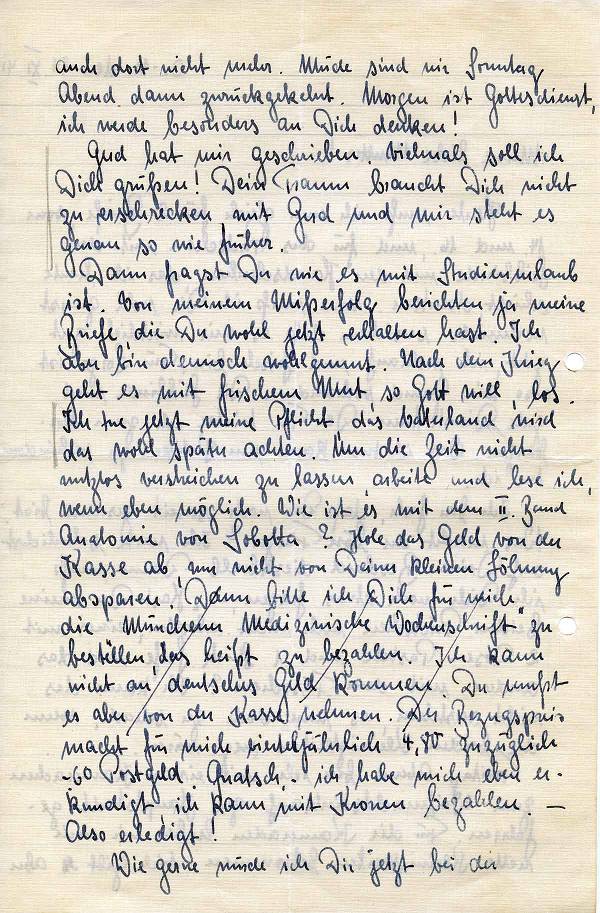 auch dort nicht mehr. Müde sind wir Sonntag
Abend dann zurückgekehrt. Morgen ist Gottesdienst,
ich werde besonders an Dich denken!
Gud hat mir geschrieben, vielmals soll ich
Dich grüßen! Dein Traum braucht Dich nicht
zu erschrecken mit Gud und mir steht es
genau so wie früher.
Dann fragst Du wie es mit Studienurlaub
ist. Von meinem Mißerfolg berichten ja meine
Briefe, die Du wohl jetzt erhalten hast. Ich
aber bin dennoch wohlgemut. Nach dem Krieg
geht es mit frischem Mut, so Gott will, los.
Ich tue jetzt meine Pflicht, das Vaterland wird
das wohl später achten. Um die Zeit nicht
nutzlos verstreichen zu lassen, arbeite und lese ich,
wenn eben möglich. Wie ist es mit dem II. Band
Anatomie von Sobotta? Hole das Geld von der
Kasse ab, um nicht von Deiner kleinen Löhnung
absparen. Dann bitte ich Dich für mich
die „Münchenn Medizinische Wochenschrift" zu
bestellen, das heißt zu bezahlen. Ich kann
nicht an deutsches Geld kommen. Du mußt
es aber von der Kasse nehmen. Der Bezugspreis
macht für mich vierteljährlich 4,80 zuzüglich
-60 Postgeld. Quatsch - ich habe mich eben er-
kundigt, ich kann mit Kronen bezahlen. —
Also erledigt!
Wie gerne würde ich Dir jetzt bei der